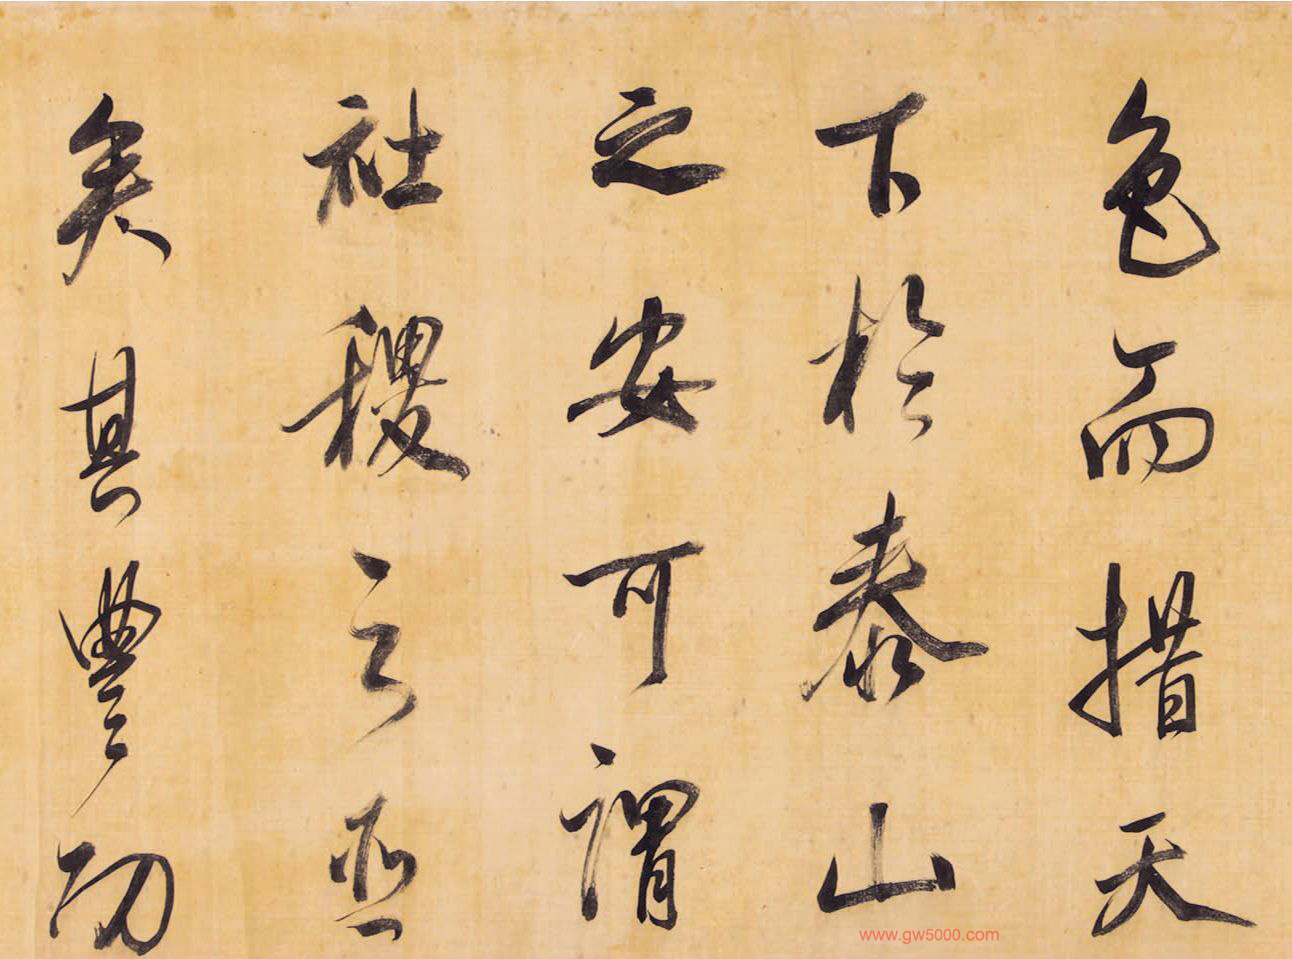 色而措天
下於泰山
之安可謂
社稷之臣
矣其豐功
www.gw5000.com